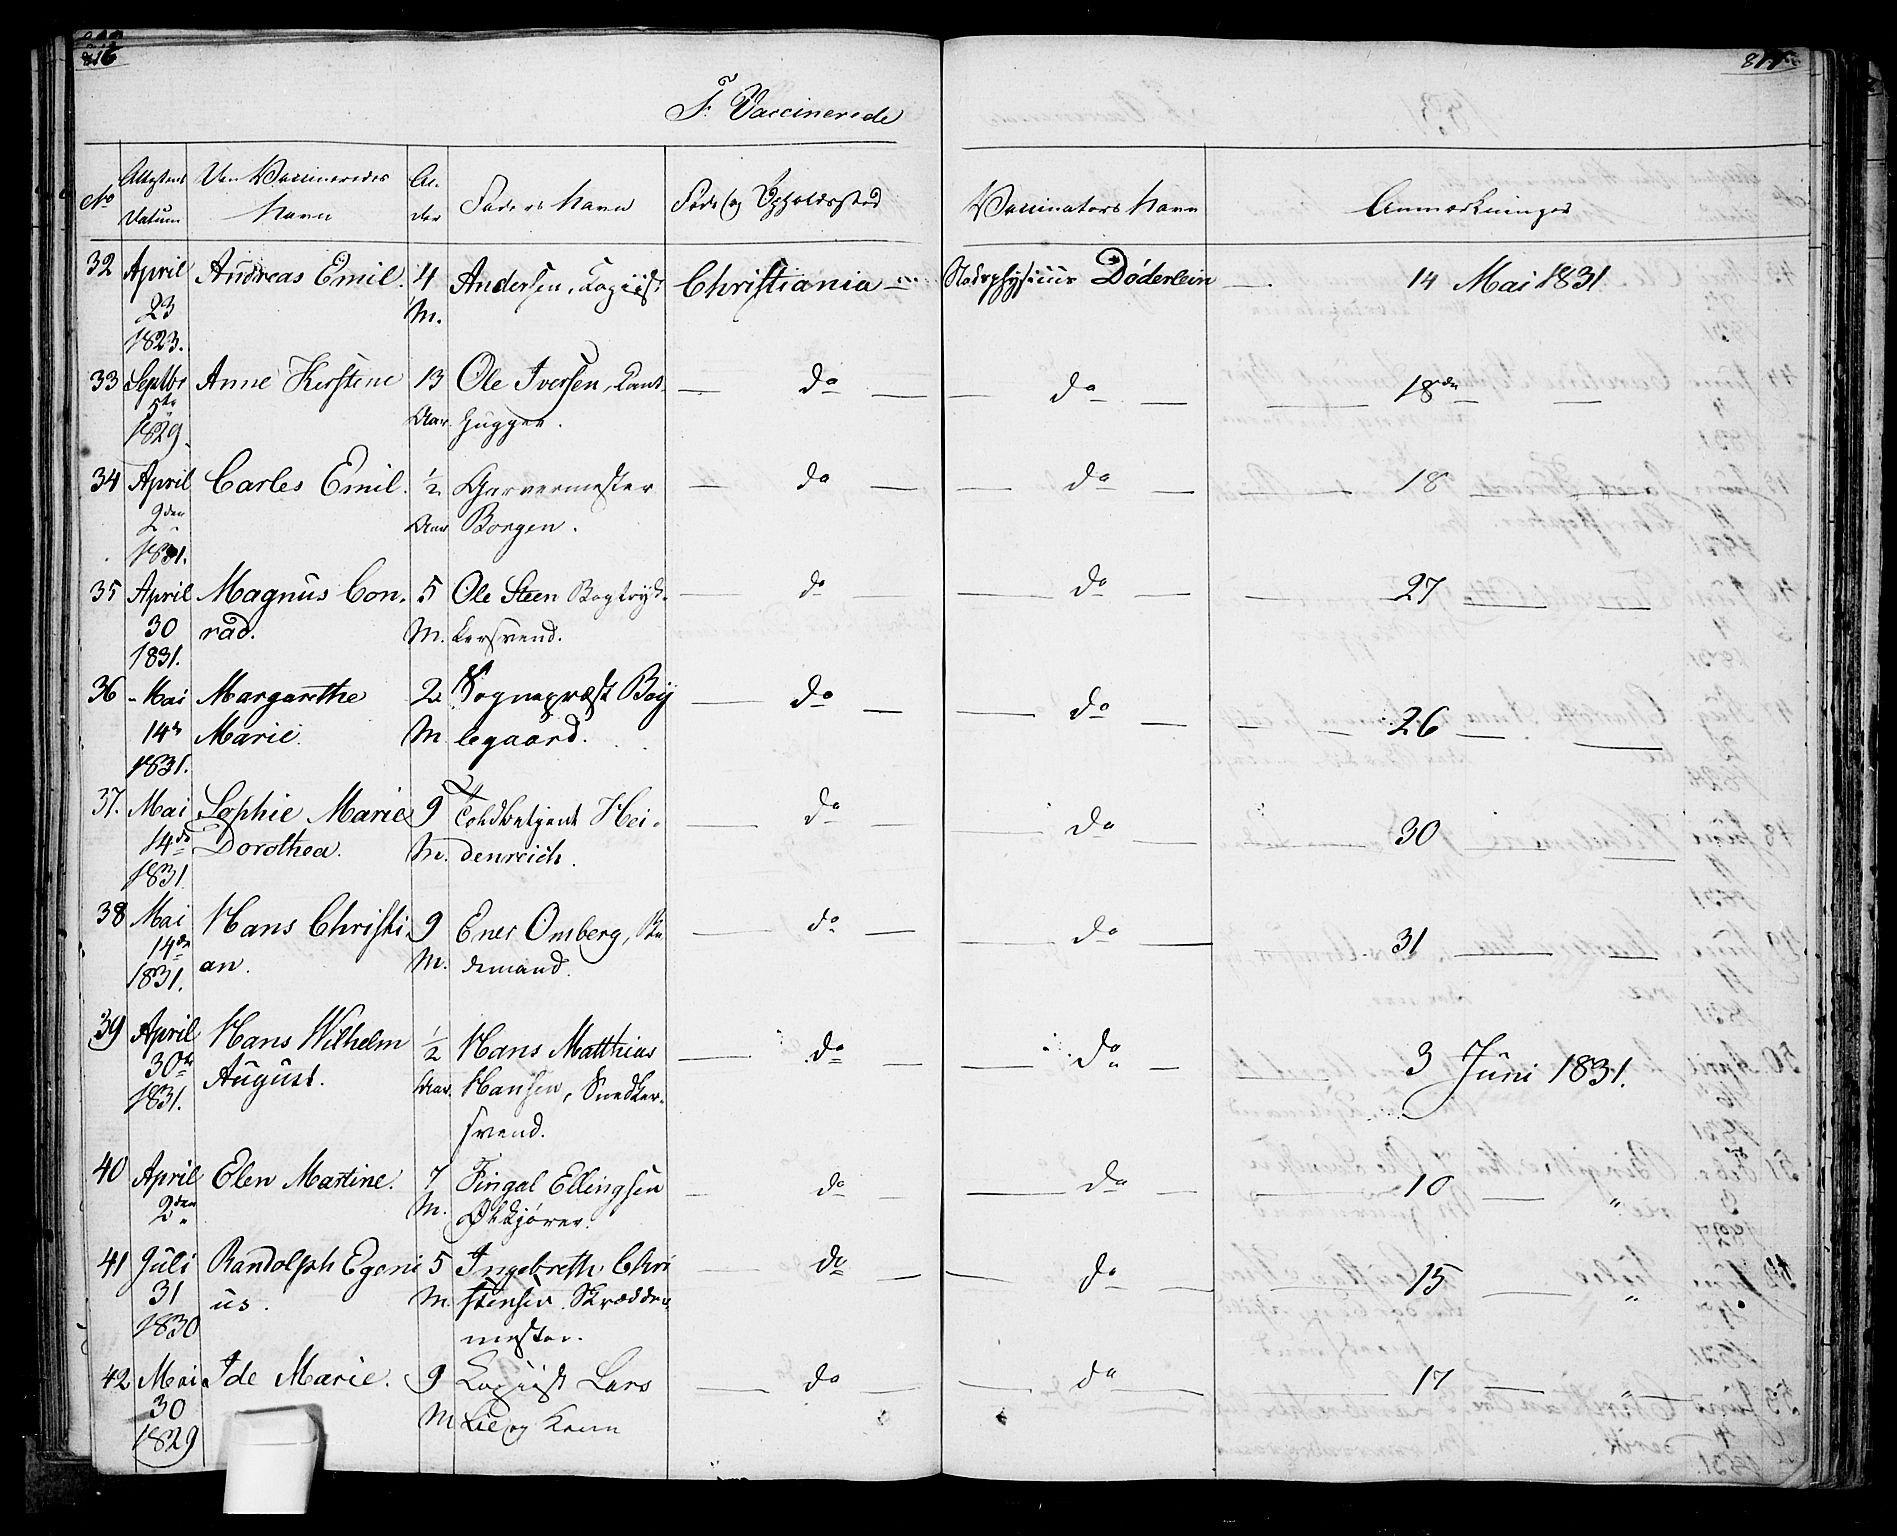 816
817
F. Vaccinerede
No
Attestens Datum
Den Vaccineredes Navn
Al-der
Faders Navn
Føde og Opholdssted
Vaccinators Navn
Anmærkninger
32 April Andreas Emil. 4 Andersen, Copiist Christiania Stadsphysicus Døderlein 14 Mai 1831.
23 M.
1823.
33 Septbr Anne Kirstine 13 Ole Iversen, do do 18de
5te Aar hugger.
1829.
34 April Carles Emil. 1/2 Garvermester do do 18
2den Aar Borgen.
1831.
35 April Magnus Con- 5 Ole Steen Bogtryk- do do 27
30 rad. M. kersvend.
1831.
36 Mai Margarethe 2 Sognepræst Boy do do 26
14de Marie. M. legaard.
1831.
37. Mai Sophie Marie 9 Toldbetjent Hei- do do 30
14de Dorothea. M. denreich.
1831.
38 Mai Hans Christi- 9 Ener Omberg, do do 31
14de an. M. demand.
1831.
39 April Hans Wilhelm 1/2 Hans Matthias do do 3 Juni 1831.
30te August. Aar. Hansen, Snedker-
1831. svend.
40 April Elen Martine. 7 Fingal Ellingsen do do 10 "
2den M.
41 Juli Randolph Egeni 5 Ingebreth Chri do do 15 "
31 us. M. stensen. Skrædder-
1830 mester.
42 Mai Ide Marie. 9 Copiist Lars do do 17 "
30 M. Lie og Kone
1829